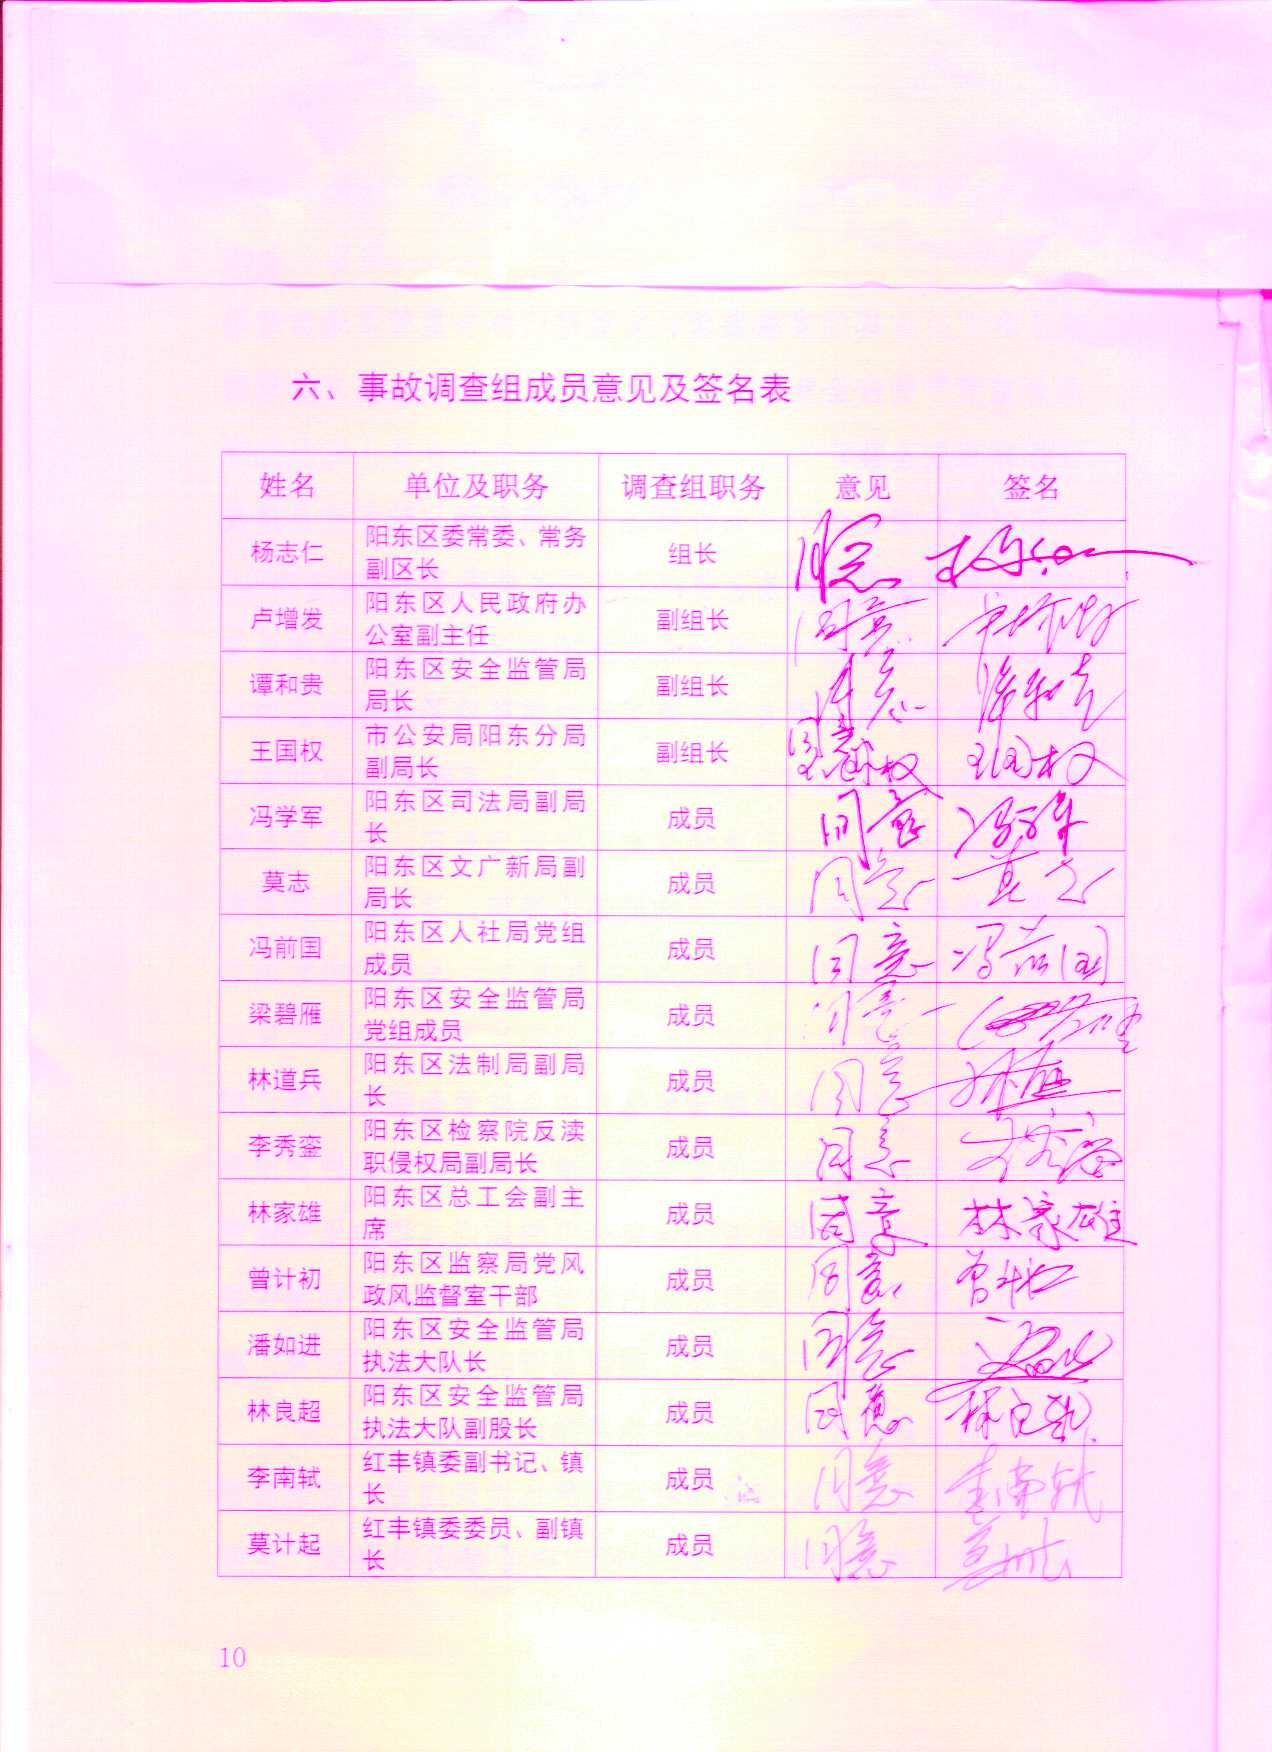 六、事故调查组成员意见及签名表
姓名 单位及职务 调查组职务 意见 签名
杨志仁 阳东区委常委、常务 组长 同意
副区长
卢增发 阳东区人民政府办 副组长 同意
公室副主任
谭和贵 阳东区安全监管局 副组长 同意 谭和贵
局长
王国权 市公安局阳东分局 副组长 同意 王国权
副局长
冯学军 阳东区司法局副局 成员 同意 冯学军
长
莫志 阳东区文广新局副 成员 同意 莫志
局长
冯前国 阳东区人社局党组 成员 同意 冯前国
成员
梁碧雁 阳东区安全监管局 成员 同意
党组成员
林道兵 阳东区法制局副局 成员 同意
长
李秀銮 阳东区检察院反渎 成员 同意
职侵权局副局长
林家雄 阳东区总工会副主 成员 同意 林家雄
席
曾计初 阳东区监察局党风 成员 同意 曾计初
政风监督室干部
潘如进 阳东区安全监管局 成员 同意
执法大队长
林良超 阳东区安全监管局 成员 同意 林良超
执法大队副股长
李南轼 红丰镇委副书记、镇 成员 同意 李南轼
长
莫计起 红丰镇委委员、副镇 成员 同意 莫计起
长
10